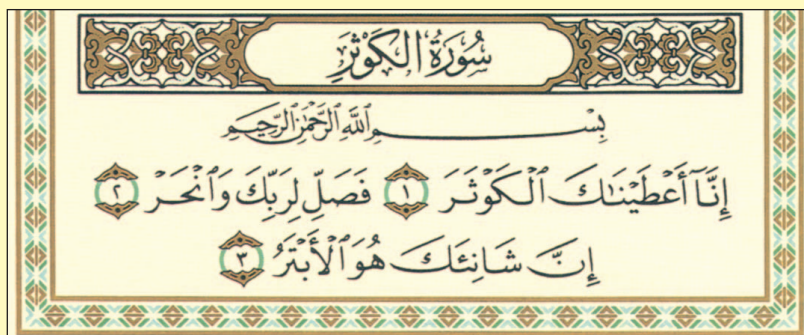 سُورَةُ الْكَوْثَرِ
بِسْمِ اللَّهِ الرَّحْمَٰنِ الرَّحِيمِ
إِنَّآ أَعْطَيْنَٰكَ ٱلْكَوْثَرَ ١ فَصَلِّ لِرَبِّكَ وَٱنْحَرْ ٢
إِنَّ شَانِئَكَ هُوَ ٱلْأَبْتَرُ ٣